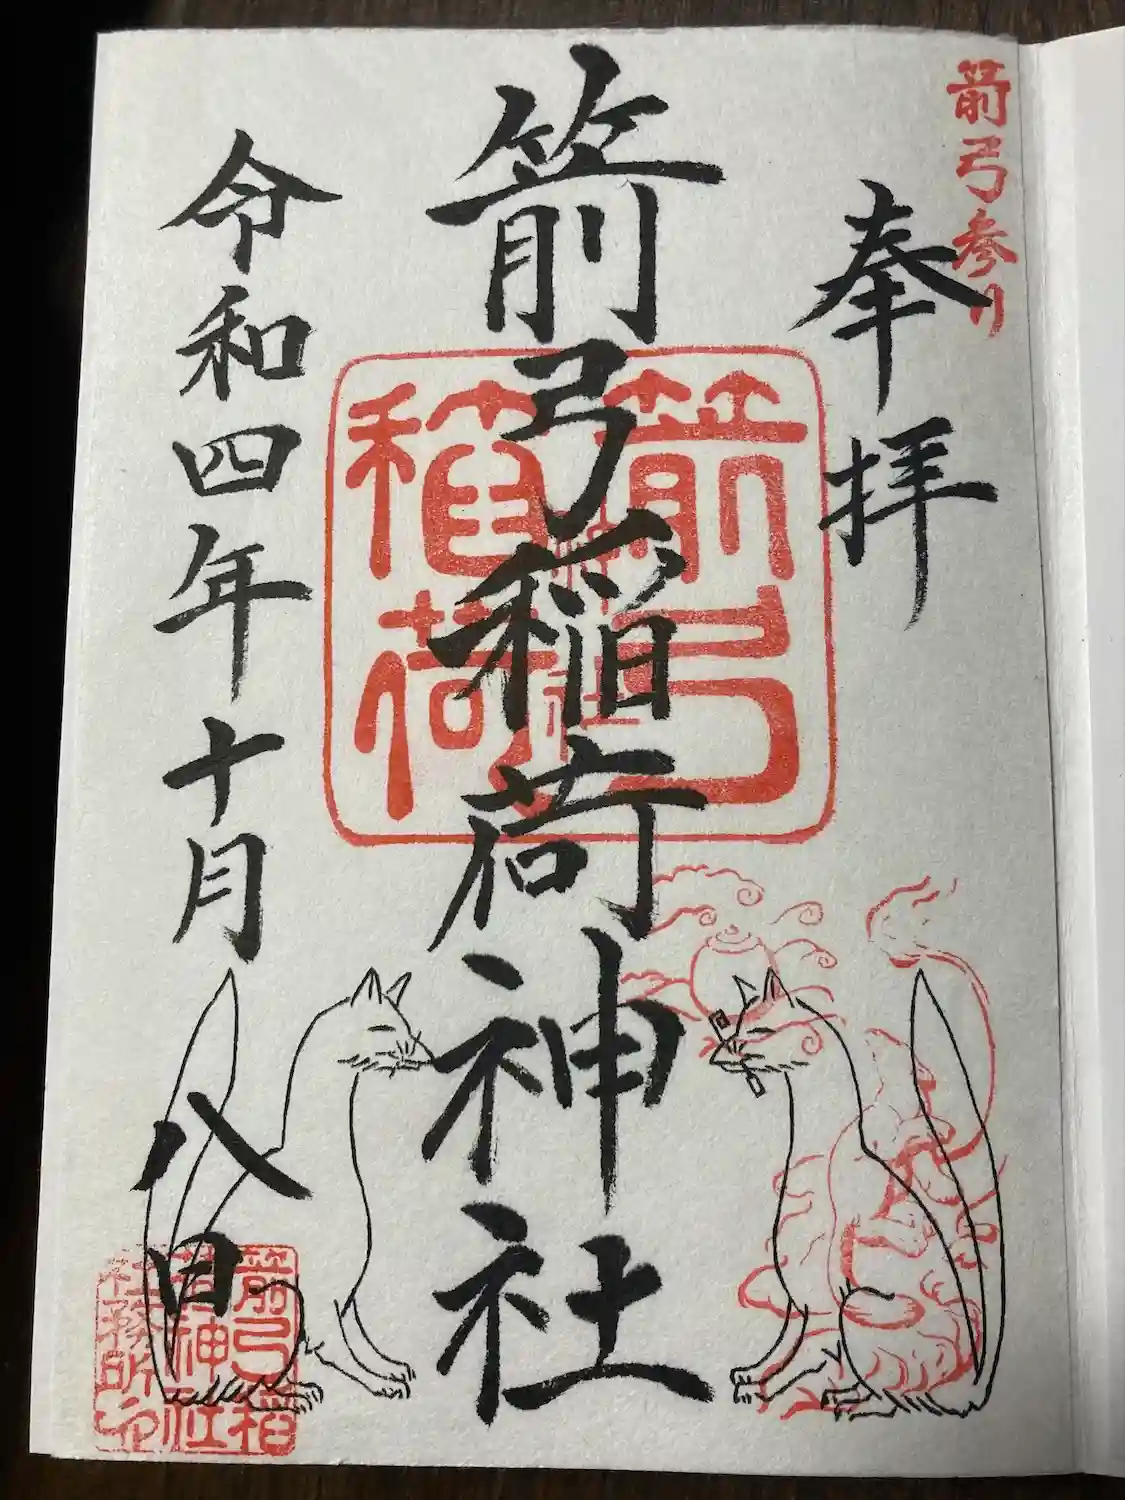 箭弓参り
奉拝
箭弓稲荷神社
箭弓
稲荷
令和四年十月八日
箭弓稲
荷神社
社務所印